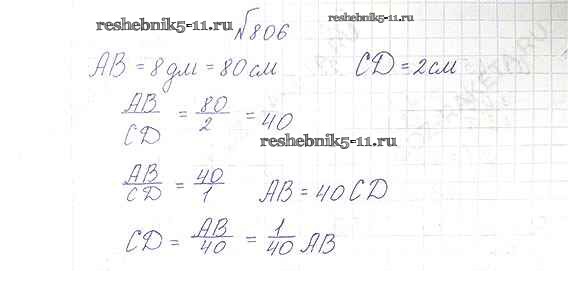 reshebnik5-11.ru
reshebnik5-11.ru
№806
AB = 8дм = 80см CD = 2см
AB/CD = 80/2 = 40
reshebnik5-11.ru
AB/CD = 40/1 AB = 40CD
CD = AB/40 = 1/40 AB